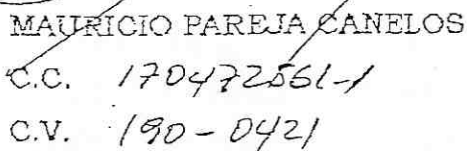 MAURICIO PAREJA CANELOS
C.C. 170472561-1
C.V. 190-0421